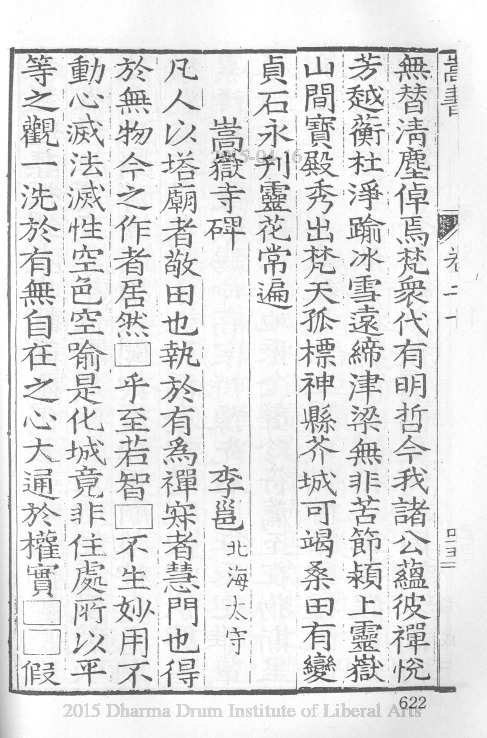 嵩書
卷二
無替清塵倬焉梵衆代有明哲今我諸公蘊彼禪悅
芳越蘅杜淨踰冰雪遠締津梁無非苦節潁上靈嶽
山間寶殿秀出梵天孤標神縣芥城可竭桑田有變
貞石永刊靈花常遍
嵩嶽寺碑 李邕 北海太守
凡人以塔廟者敬田也執於有為禪寂者慧門也得
於無物今之作者居然□乎至若智□不生妙用不
動心滅法滅性空色空喻是化城竟非住處所以平
等之觀一洗於有無自在之心大通於權實□□假
622
2015 Dharma Drum Institute of Liberal Arts